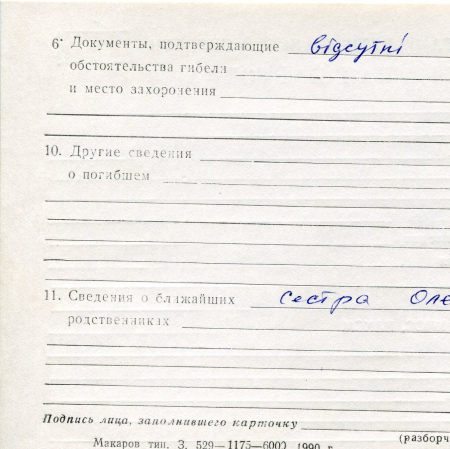 6· Документы, подтверждающие відсутні
обстоятельства гибели
и место захоронения
10. Другие сведения
о погибшем
11. Сведения о ближайших сестра Оле
родственниках
Подпись лица, заполнившего карточку
(разборч
Макаров тип. З. 529—1175—6000 1990 г.